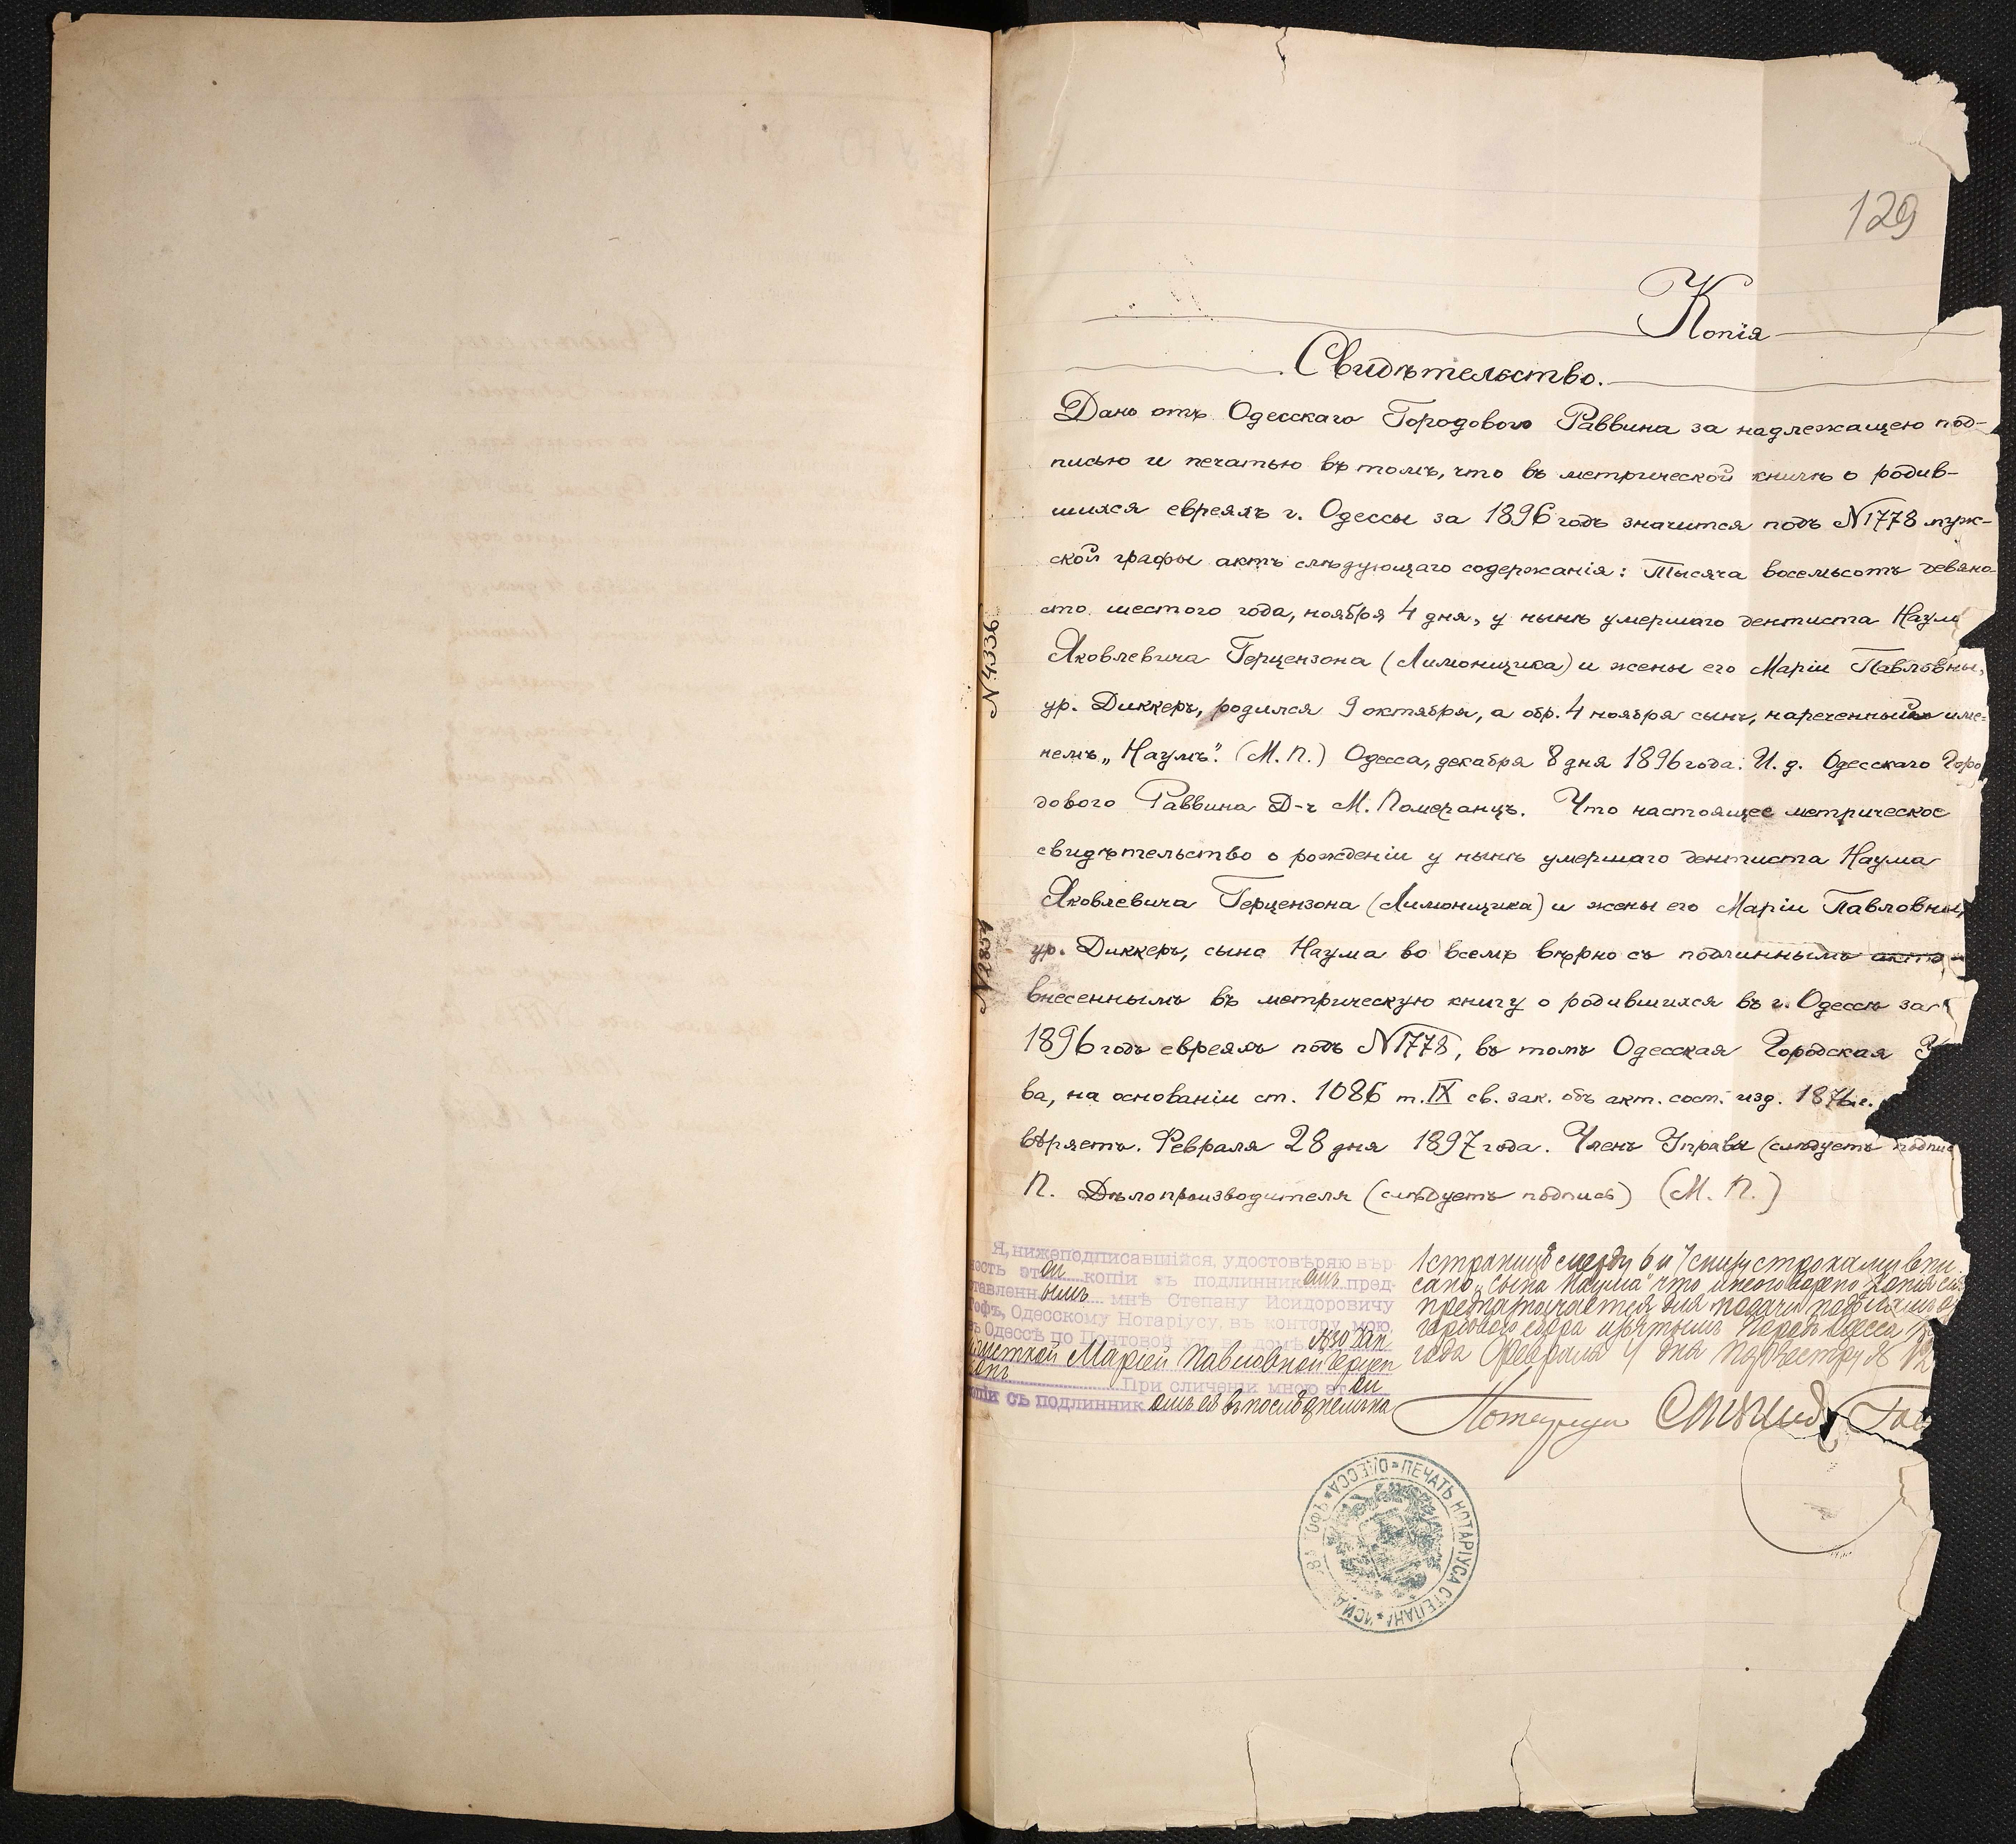 129
Копія
Свидѣтельство.
Дано отъ Одесскаго Городового Раввина за надлежащею под-
писью и печатью въ томъ, что въ метрической книгѣ о родив-
шихся евреяхъ г. Одессы за 1896 годъ значится подъ №1778 муж-
ской графы актъ слѣдующаго содержанія: Тысяча восемьсотъ девяно-
сто шестого года, ноября 4 дня, у нынѣ умершаго дентиста Наума
Яковлевича Герцензона (Лимонщика) и жены его Маріи Павловны,
ур. Диккеръ, родился 9 октября, а обр. 4 ноября сынъ, нареченный име-
немъ „Наумъ". (М. П.) Одесса, декабря 8 дня 1896 года. И. д. Одесскаго Горо
дового Раввина Д-ръ М. Померанцъ. Что настоящее метрическое
свидѣтельство о рожденіи у нынѣ умершаго дентиста Наума
Яковлевича Герцензона (Лимонщика) и жены его Маріи Павловны,
ур. Диккеръ, сына Наума во всемъ вѣрно съ подлиннымъ актo
внесеннымъ въ метрическую книгу о родившихся въ г. Одессѣ за
1896 годъ евреяхъ подъ №1778, въ томъ Одесская Городская У
ва, на основаніи ст. 1086 т. IX св. зак. объ акт. сост. изд. 1876 г.
вѣряетъ. Февраля 28 дня 1897 года. Членъ Управы (слѣдуетъ подпис
П. Дѣлопроизводителя (слѣдуетъ подпись) (М. П.)
№4336
№2854
Я, нижеподписавшійся, удостовѣряю вѣр-
ность этой копіи съ подлинникомъ пред-
ставленнымъ мнѣ Степану Исидоровичу
Гофъ, Одесскому Нотаріусу, въ контору мою,
въ Одессѣ по Почтовой ул. въ домѣ №30
Маріей Павловной Герцен
зонъ При сличеніи мною этой
копіи съ подлинникомъ въ послѣднемъ на
1 страницѣ между 6 и 7 снизу строками впи
сано „сына Наума" что
предназначается для подачи
года Февраля дня по реестру №
Нотаріусъ
ПЕЧАТЬ НОТАРІУСА СТЕПАНА ОДЕССА